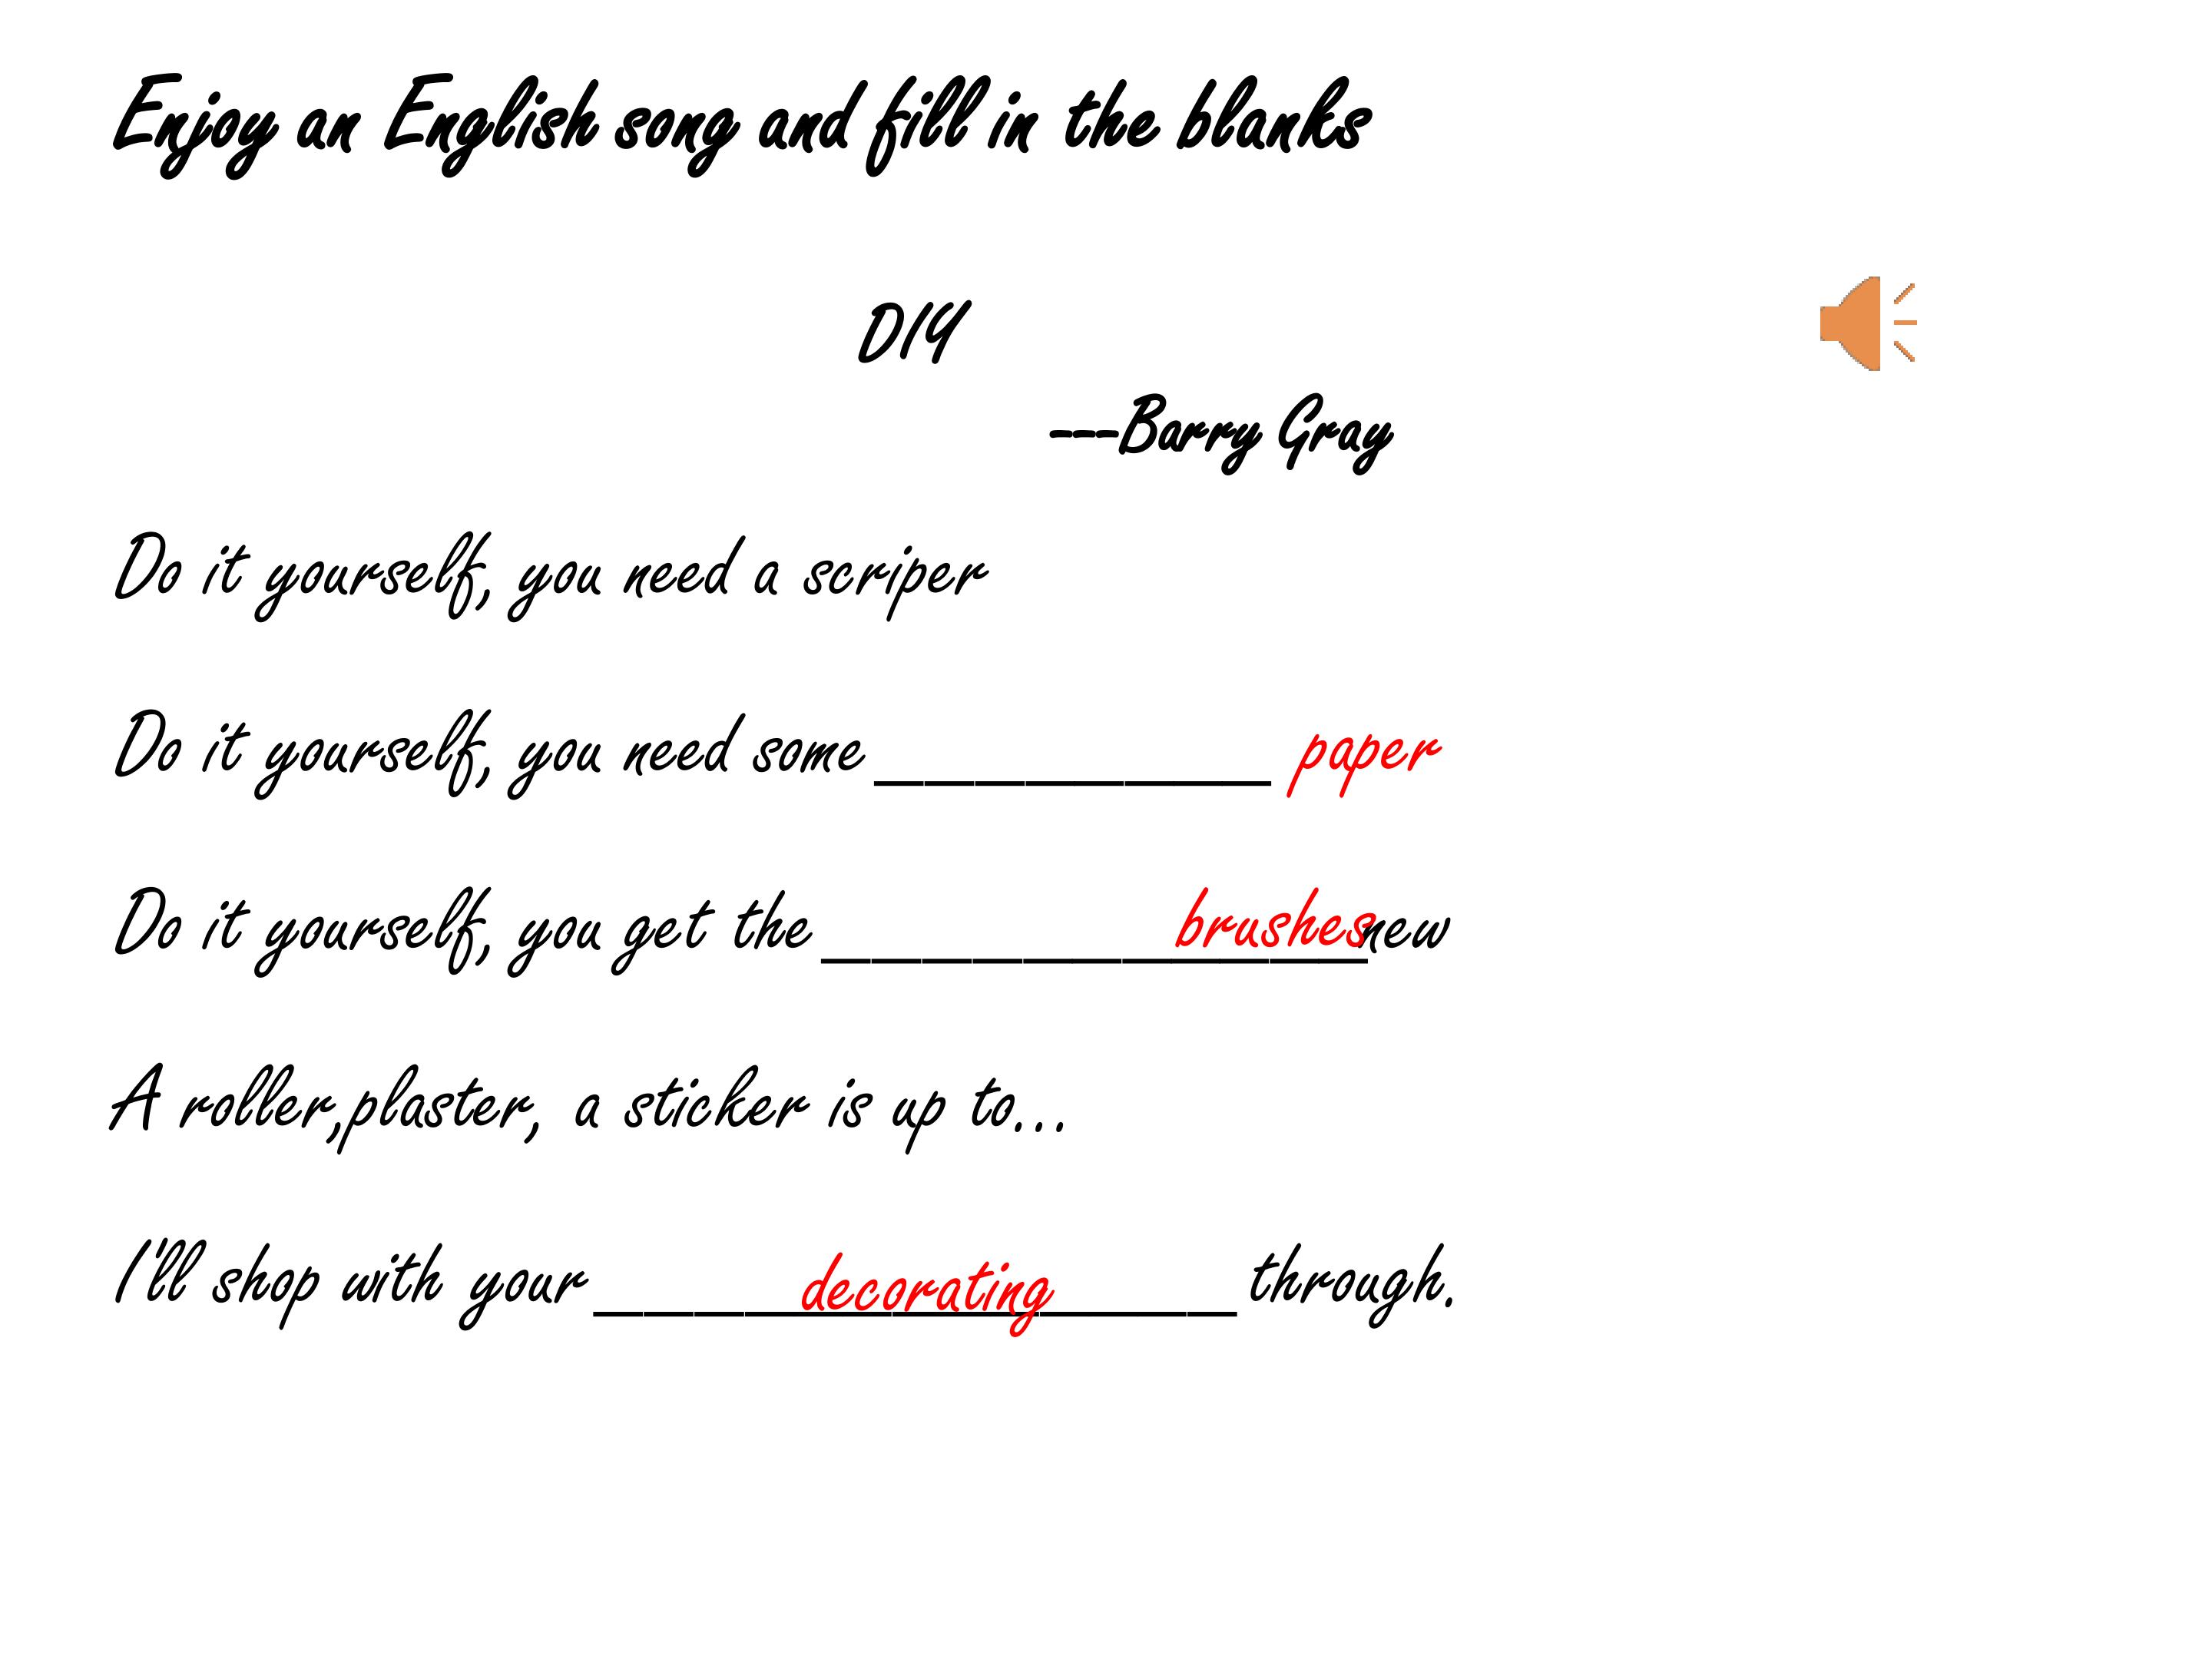 Enjoy an English song and fill in the blanks
DIY
---Barry Gray
Do it yourself, you need a scriper
Do it yourself, you need some ________ paper
Do it yourself, you get the ___________ brushes new
A roller,plaster, a sticker is up to...
I'll shop with your _____________ decorating through.